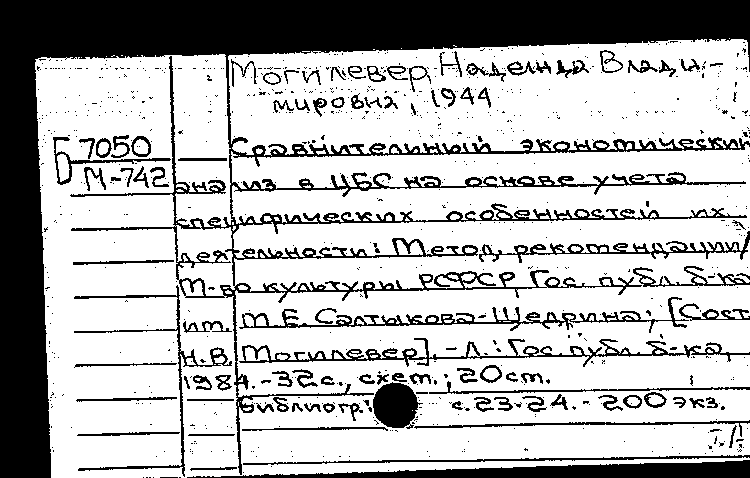 Могилевер, Надежда Влади-
мировна, 1944
Б 7050
М-742
Сравнительный экономический
анализ в ЦБС на основе учета
специфических особенностей их
деятельности: Метод. рекомендации/
М-во культуры РСФСР, Гос. публ. б-ка
им. М.Е. Салтыкова-Щедрина; [Сост.
Н.В. Могилевер]. - Л.: Гос. публ. б-ка,
1984. - 32 с., схем.; 20 см.
Библиогр.: с. 23-24. - 200 экз.